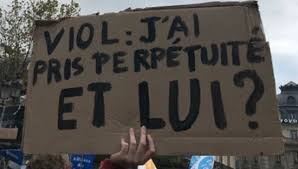 VIOL : J'AI
PRIS PERPÉTUITÉ
ET LUI ?